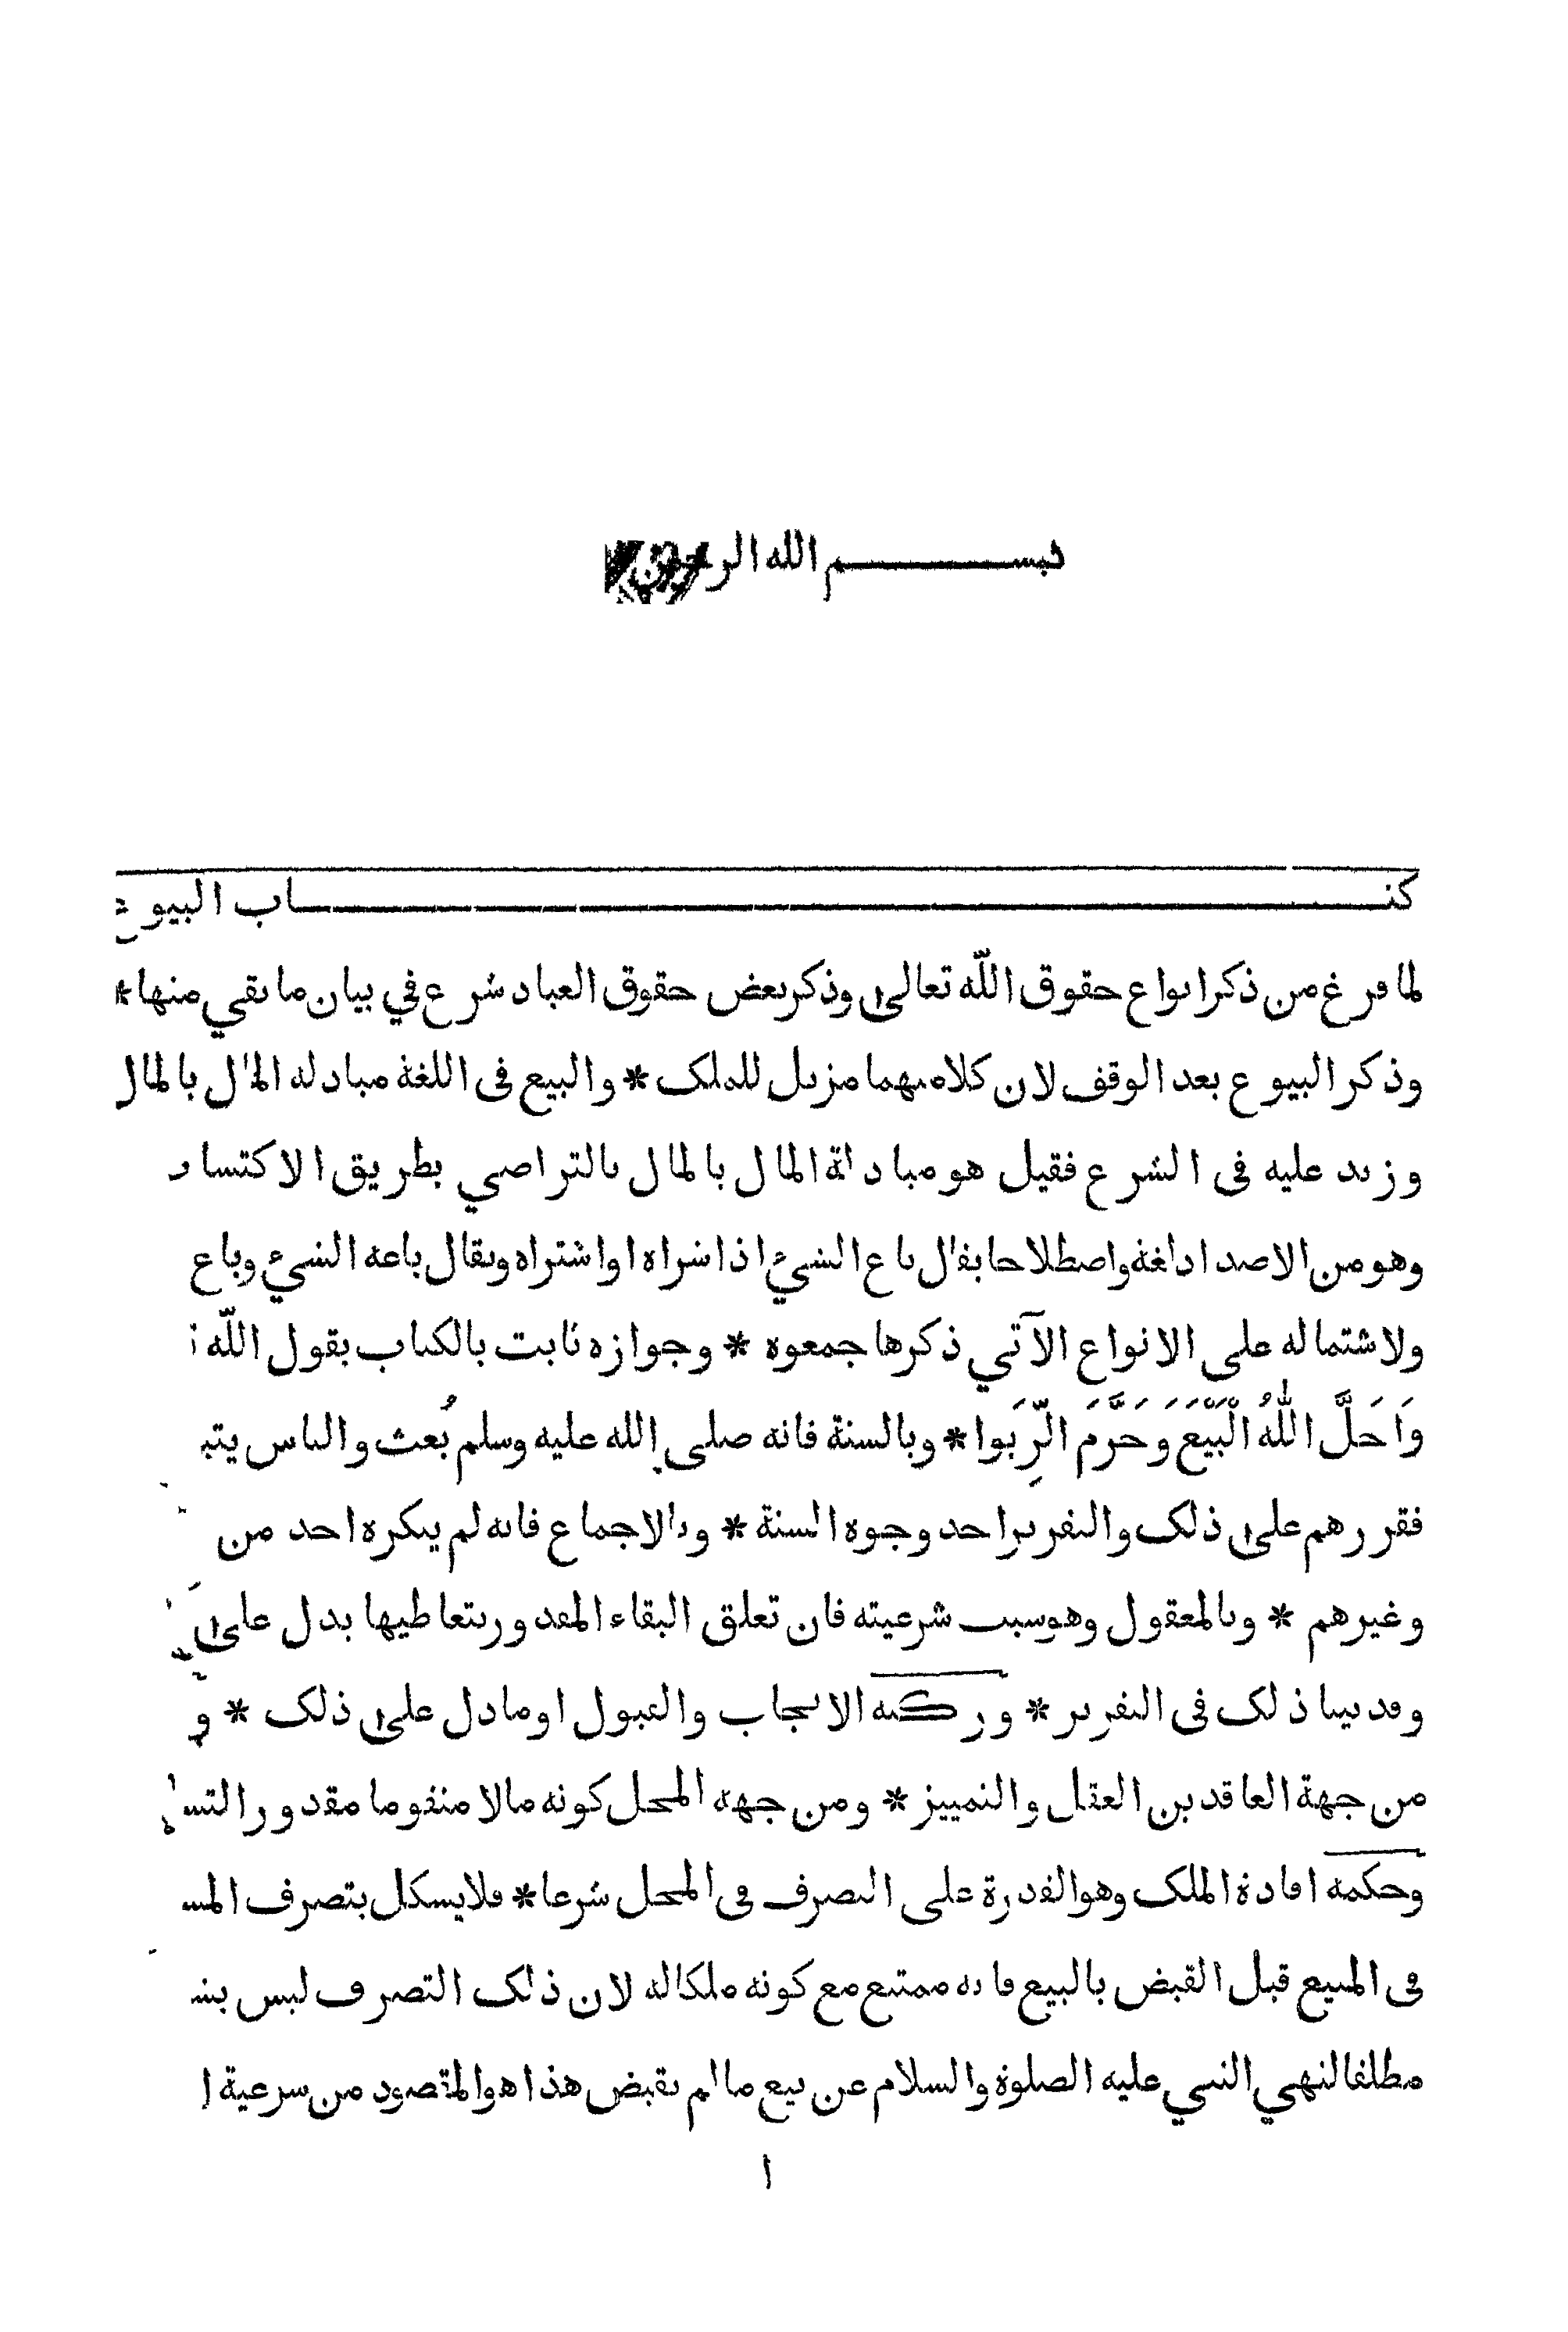 بســـــم الله الر
كتـــــــاب البيوع
لما فرغ من ذكر انواع حقوق اللّه تعالى وذكر بعض حقوق العباد شرع في بيان ما بقي منها *
وذكر البيوع بعد الوقف لان كلا منهما مزيل للملك * والبيع فى اللغة مبادلة المال بالمال
وزيد عليه فى الشرع فقيل هو مبادلة المال بالمال بالتراضي بطريق الاكتساب
وهو من الاضداد لغة واصطلاحا يقال باع الشيء اذا شراه او اشتراه ويقال باعه الشيء وباع
ولاشتماله على الانواع الآتي ذكرها جمعوه * وجوازه ثابت بالكتاب بقول اللّه
وَاَحَلَّ اللّٰهُ الْبَيْعَ وَحَرَّمَ الرِّبَوا * وبالسنة فانه صلى الله عليه وسلم بُعث والناس
فقررهم على ذلك والتقرير احد وجوه السنة * وبالاجماع فانه لم ينكره احد من
وغيرهم * وبالمعقول وهو سبب شرعيته فان تعلق البقاء المقدور بتعاطيها يدل على
وقد بينا ذلك فى التقرير * وركنه الايجاب والقبول او ما دل على ذلك *
من جهة العاقدين العقل والتمييز * ومن جهة المحل كونه مالا متقوما مقدور
وحكمه افادة الملك وهو القدرة على التصرف فى المحل شرعا * فلا يشكل بتصرف
فى المبيع قبل القبض بالبيع فانه ممتنع مع كونه ملكا له لان ذلك التصرف ليس
مطلقا لنهي النبي عليه الصلوة والسلام عن بيع ما لم يقبض هذا هو المقصود من شرعية
١